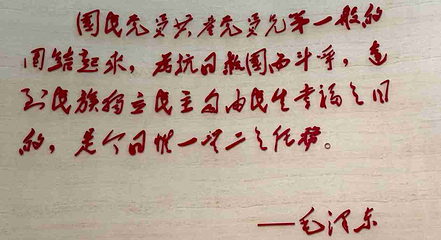 国民党员共产党员兄弟一般的
团结起来，为抗日救国而斗争，达
到民族独立民主自由民生幸福之目
的，是今日惟一无二之任务。
——毛泽东